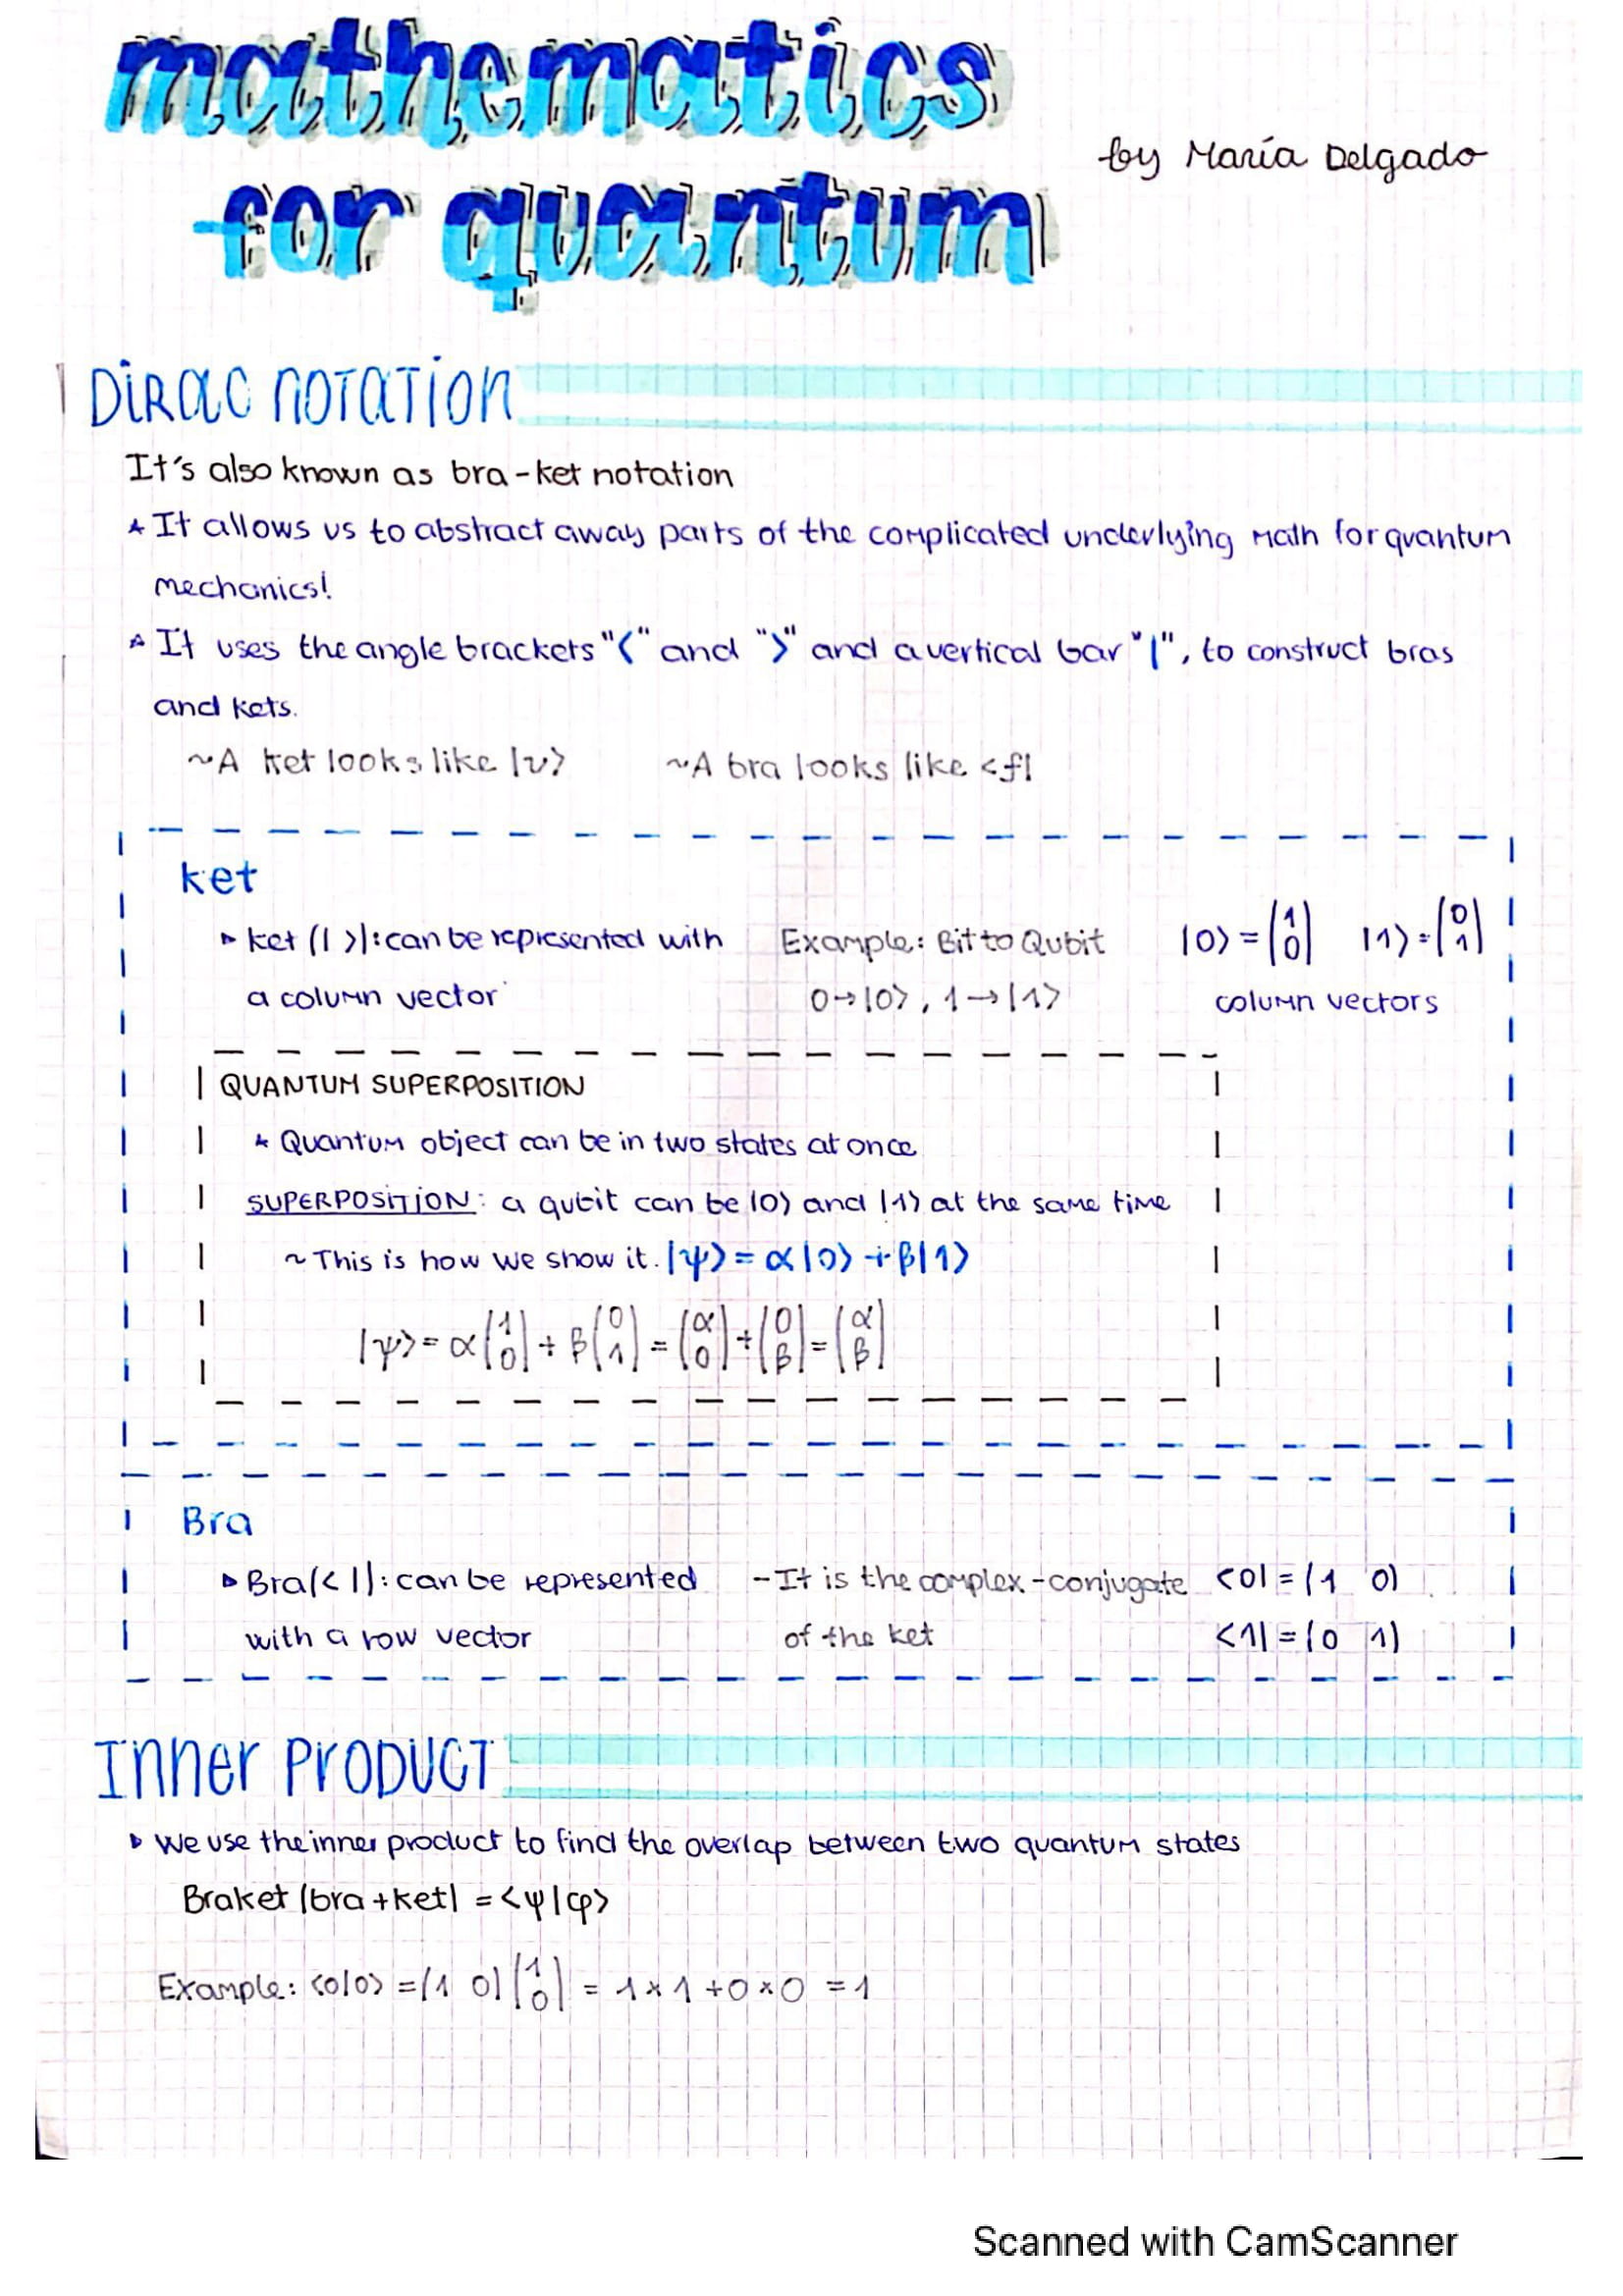 mathematics
for quantum
by María Delgado
Dirac notation
It's also known as bra-ket notation
* It allows us to abstract away parts of the complicated underlying math for quantum
mechanics!
* It uses the angle brackets "⟨" and "⟩" and a vertical bar "|", to construct bras
and kets.
~A ket looks like |v⟩ ~A bra looks like <f|
ket
▹ Ket (| >): can be represented with Example: Bit to Qubit |0⟩ = (1 0) |1⟩ = (0 1)
a column vector 0→|0⟩, 1→|1⟩ column vectors
QUANTUM SUPERPOSITION
* Quantum object can be in two states at once
SUPERPOSITION: a qubit can be |0⟩ and |1⟩ at the same time
~ This is how we show it. |ψ⟩ = α|0⟩ + β|1⟩
|ψ⟩ = α(1 0) + β(0 1) = (α 0) + (0 β) = (α β)
Bra
▹ Bra (< |): can be represented - It is the complex-conjugate <0| = (1 0)
with a row vector of the ket <1| = (0 1)
Inner product
▹ We use the inner product to find the overlap between two quantum states
Braket (bra + ket) = <ψ|φ>
Example: <0|0> = (1 0) (1 0) = 1 × 1 + 0 × 0 = 1
Scanned with CamScanner